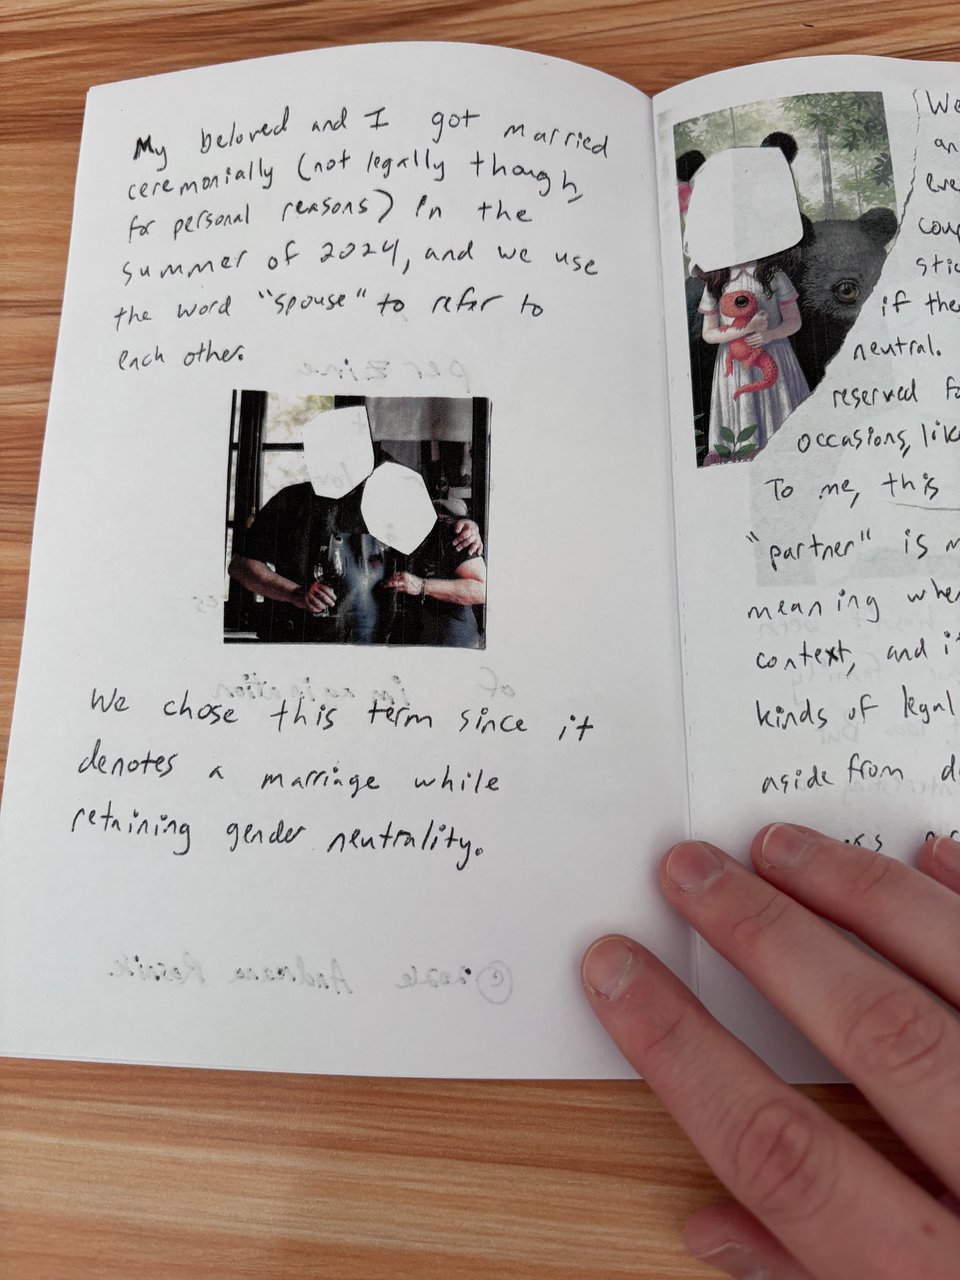 My beloved and I got married
ceremonially (not legally though,
for personal reasons) in the
summer of 2024, and we use
the word "spouse" to refer to
each other.
We chose this term since it
denotes a marriage while
retaining gender neutrality.
We
an
eve
coup
stic
if the
neutral.
reserved fo
occasions, lik
To me, this
"partner" is m
meaning whe
context, and i
kinds of legal
aside from d